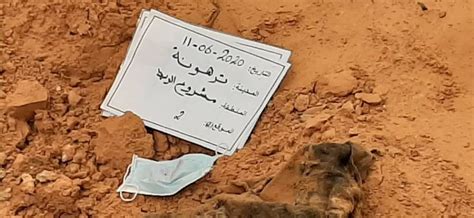 التاريخ: 11-06-2020
المدينة: ترهونة
المنطقة: مشروع الربط
الموقع: 2